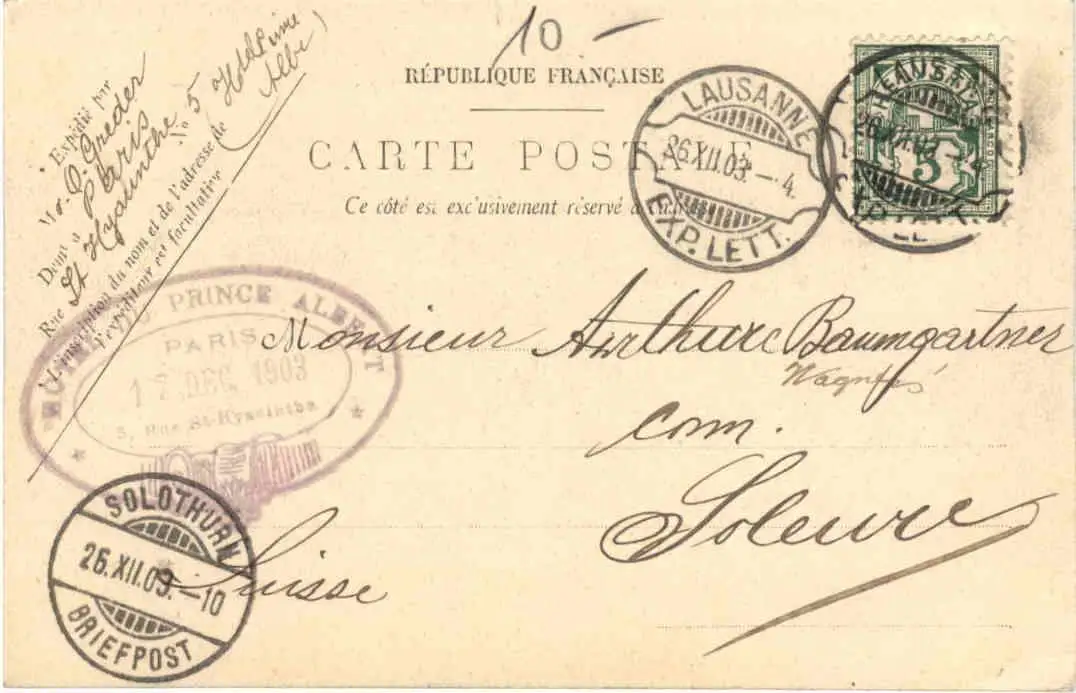 10 —
RÉPUBLIQUE FRANÇAISE
CARTE POSTALE
Ce côté est exclusivement réservé à
Expédié par
Mr. O. Greder
Paris
Dem' à
Rue St Hyacinthe No 5 Hotel Prince
Albe
L'inscription du nom et de l'adresse de
l'expéditeur est facultative
LAUSANNE
26.XII.03.–4
EXP. LETT.
HELVETIA
5
26.XII.03.–4
HÔTEL DU PRINCE ALBERT
PARIS
17 DEC. 1903
5, Rue St-Hyacinthe
Monsieur Arthur Baumgartner
com.
Soleure
Suisse
SOLOTHURN
26.XII.03.–10
BRIEFPOST